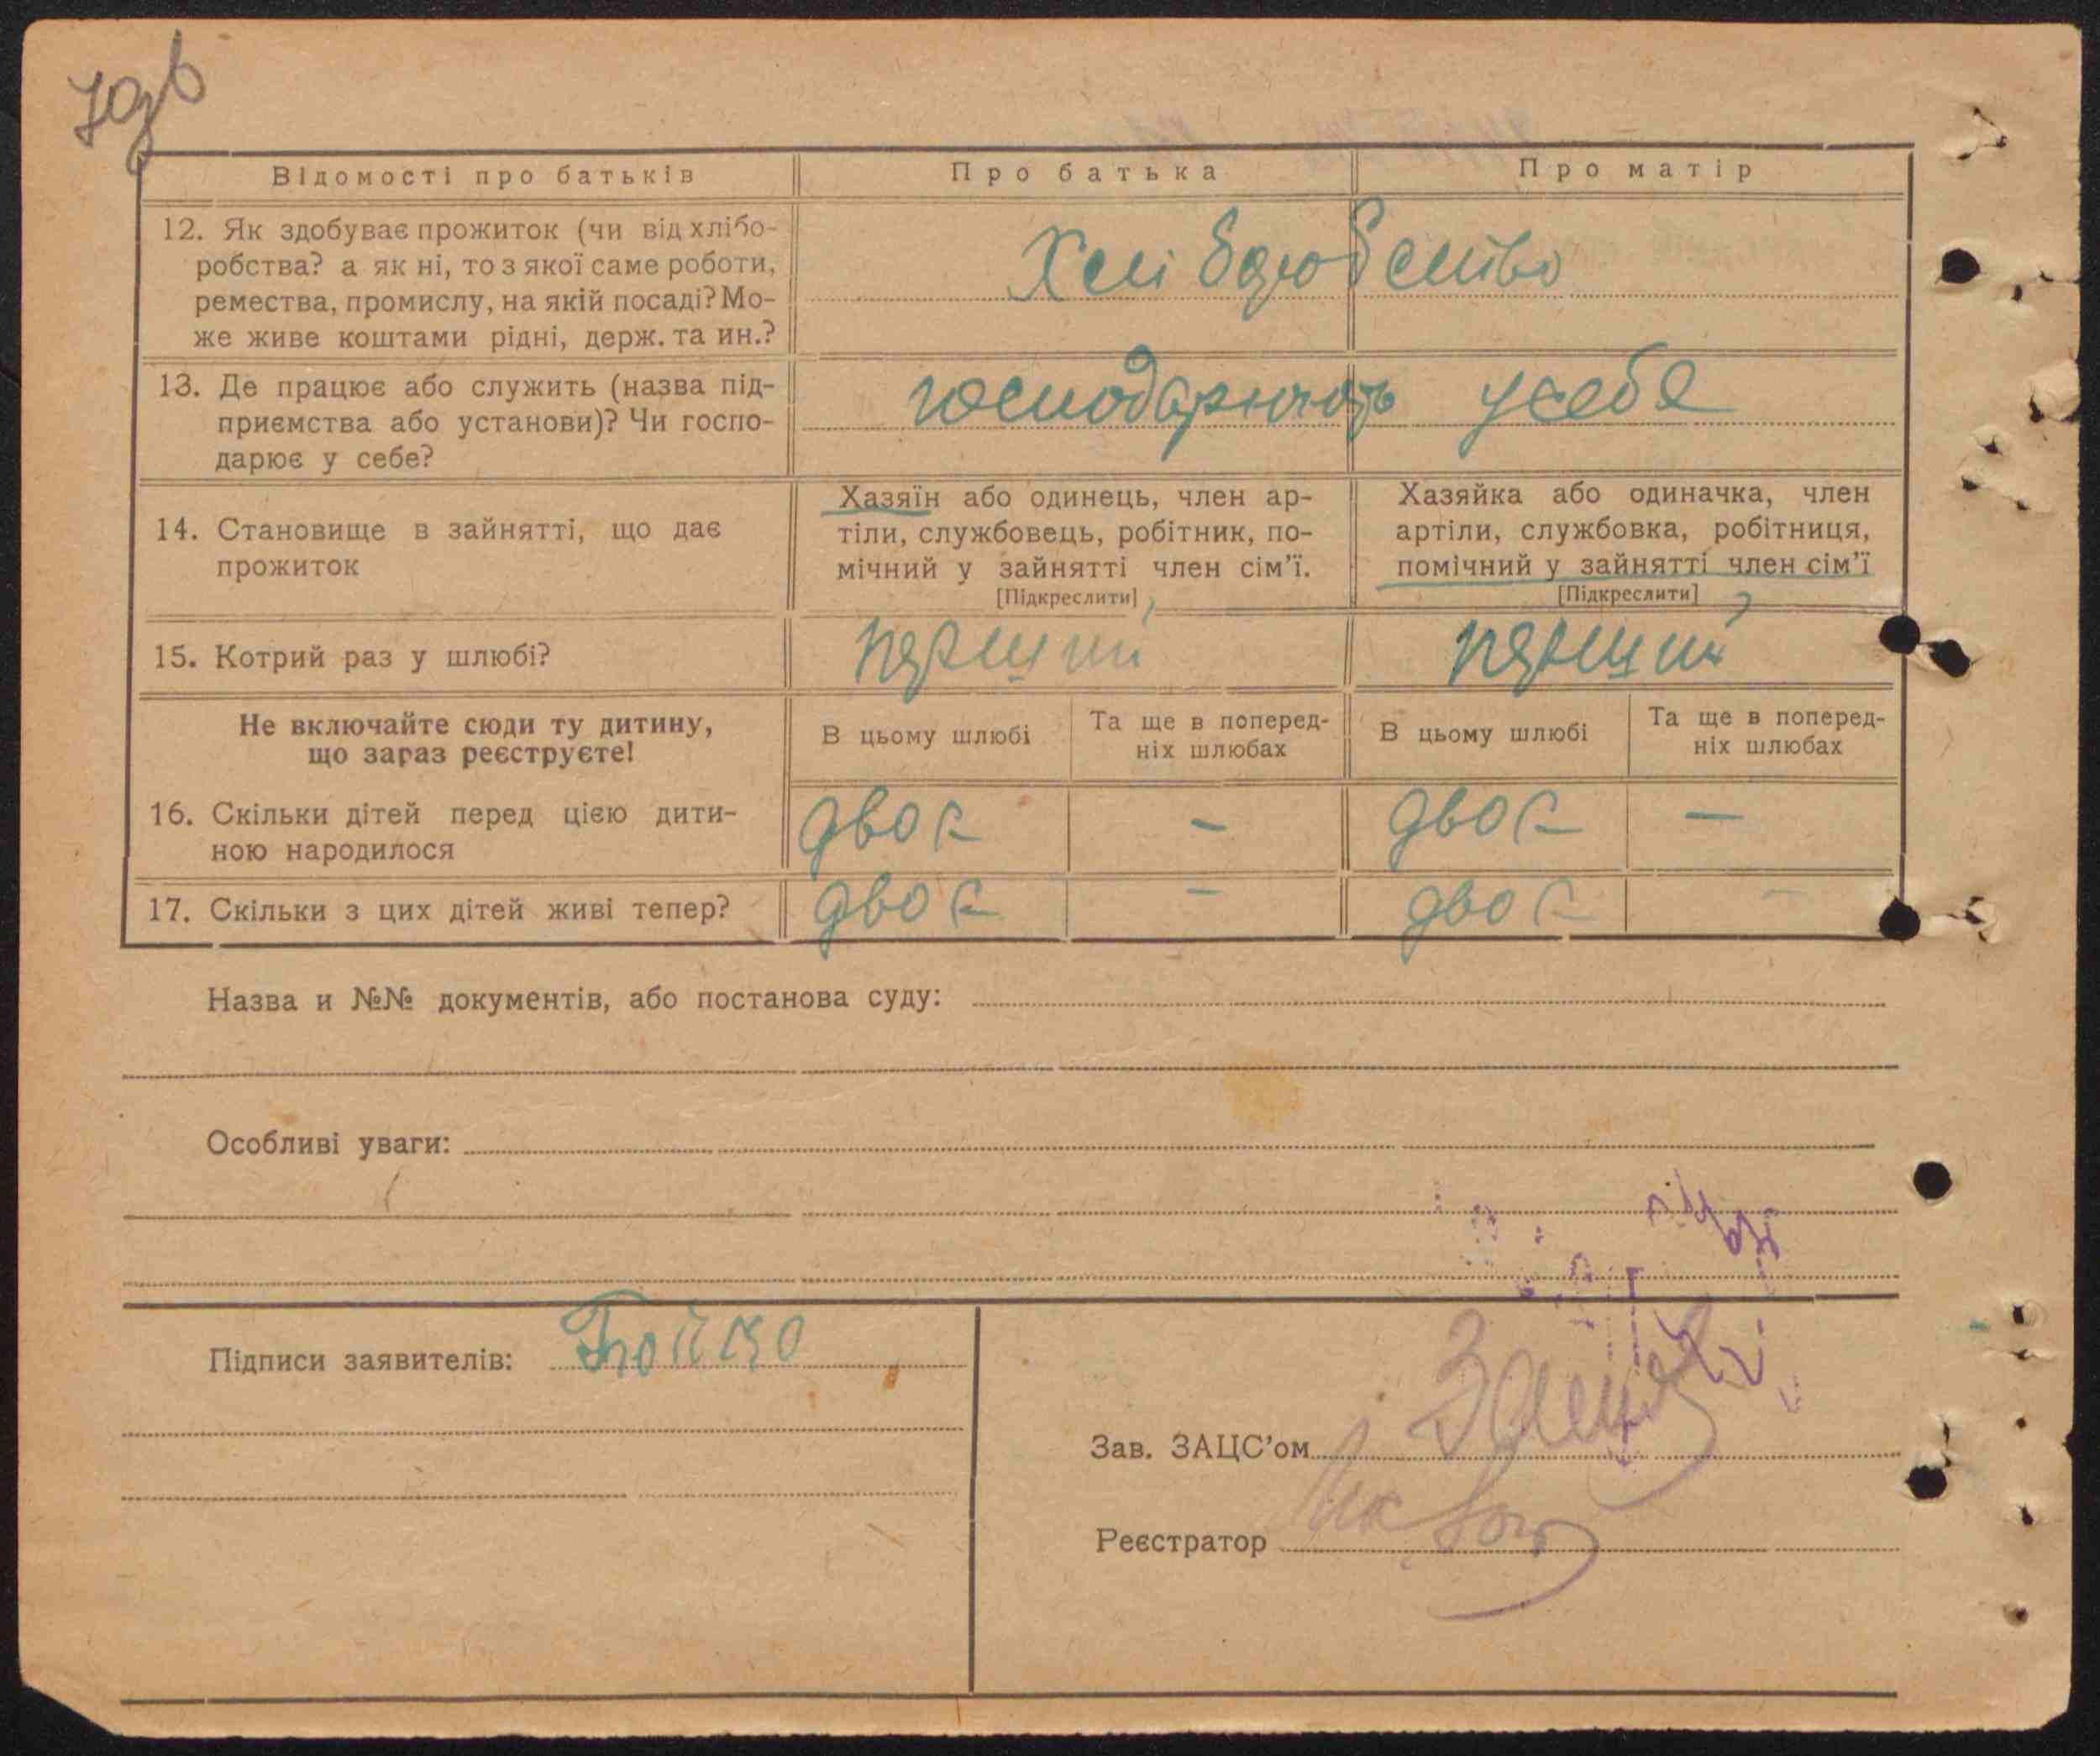 70зв
Відомості про батьків
Про батька
Про матір
12. Як здобуває прожиток (чи від хлібо-
робства? а як ні, то з якої саме роботи,
ремества, промислу, на якій посаді? Мо-
же живе коштами рідні, держ. та ин.?
13. Де працює або служить (назва під-
приємства або установи)? Чи госпо-
дарює у себе?
господарюють усебе
14. Становище в зайнятті, що дає
прожиток
Хазяїн або одинець, член ар-
тіли, службовець, робітник, по-
мічний у зайнятті член сім'ї.
[Підкреслити]
Хазяйка або одиначка, член
артіли, службовка, робітниця,
помічний у зайнятті член сім'ї
[Підкреслити]
15. Котрий раз у шлюбі?
перший
перший
Не включайте сюди ту дитину,
що зараз реєструєте!
В цьому шлюбі
Та ще в поперед-
ніх шлюбах
В цьому шлюбі
Та ще в поперед-
ніх шлюбах
16. Скільки дітей перед цією дити-
ною народилося
двоє
–
двоє
–
17. Скільки з цих дітей живі тепер?
двоє
–
двоє
–
Назва и №№ документів, або постанова суду:
Особливі уваги:
Підписи заявителів: Бойко
Зав. ЗАЦС'ом
Реєстратор